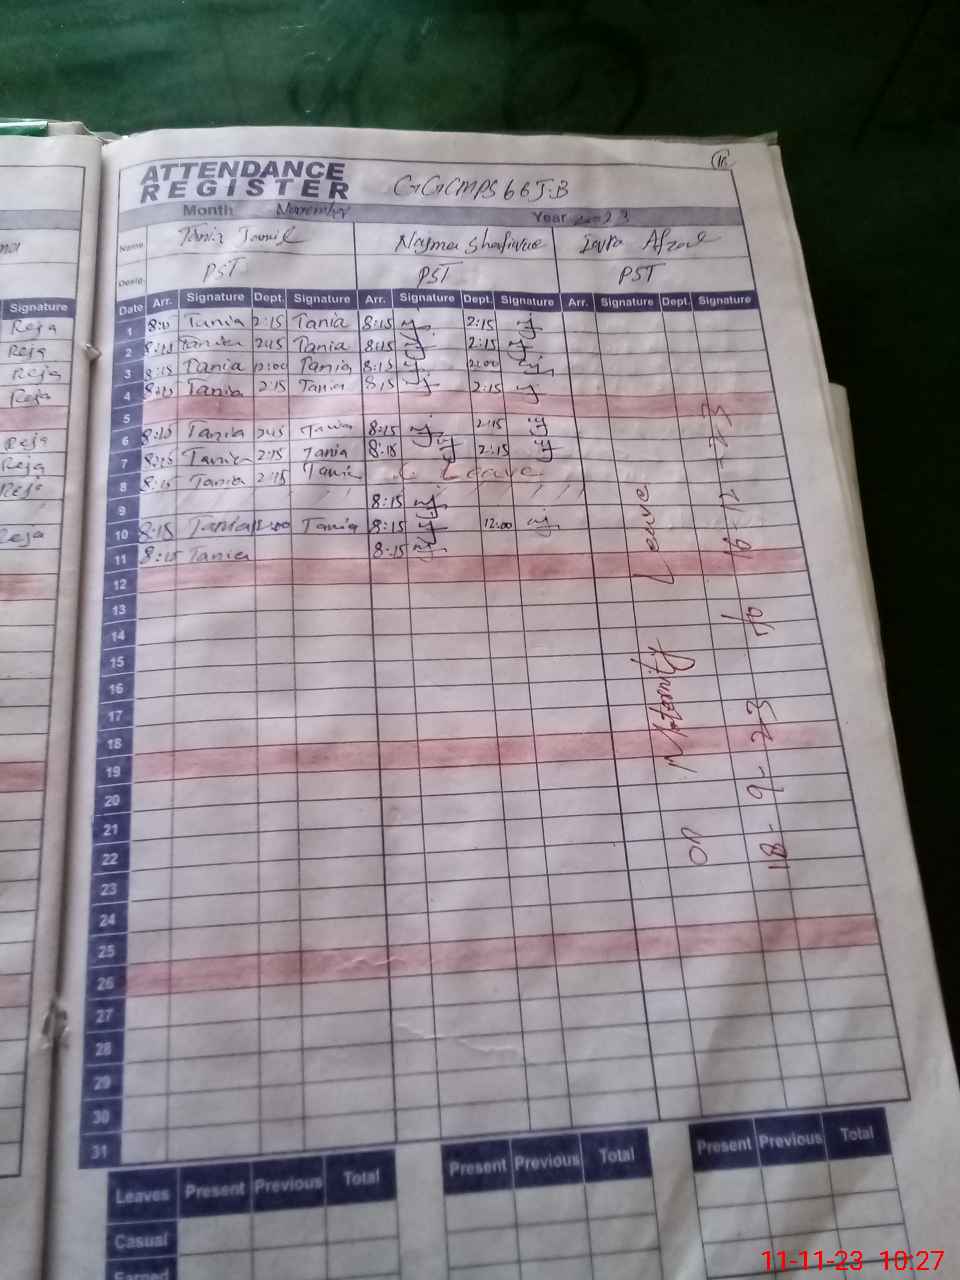 ATTENDANCE
REGISTER
Month November Year 2023
Name Tania Jamil Najma Shafique Afzal
Desig. PST PST PST
Signature
Date Arr. Signature Dept. Signature Arr. Signature Dept. Signature Arr. Signature Dept. Signature
Reja
1 8:15 Tania 2:15 Tania 8:15 2:15
Reja
2 8:15 Tania 2:15 Tania 8:15 2:15
Reja
3 8:15 Tania 12:00 Tania 8:15 12:00
Reja
4 8:15 Tania 2:15 Tania 8:15 2:15
5
Reja
6 8:15 Tania 2:15 Tania 8:15 2:15
Reja
7 8:15 Tania 2:15 Tania 8:15 2:15
Reja
8 8:15 Tania 2:15 Tania Leave
9 8:15
Reja
10 8:15 Tania 12:00 Tania 8:15 12:00
11 8:15 Tania 8:15
12
13
14
15
16
17
18
19
20
21
22
23
24
25
26
27
28
29
30
31
on Maternity Leave
18-9-23 to 16-12-23
Leaves Present Previous Total Present Previous Total Present Previous Total
Casual
Earned
11-11-23 10:27